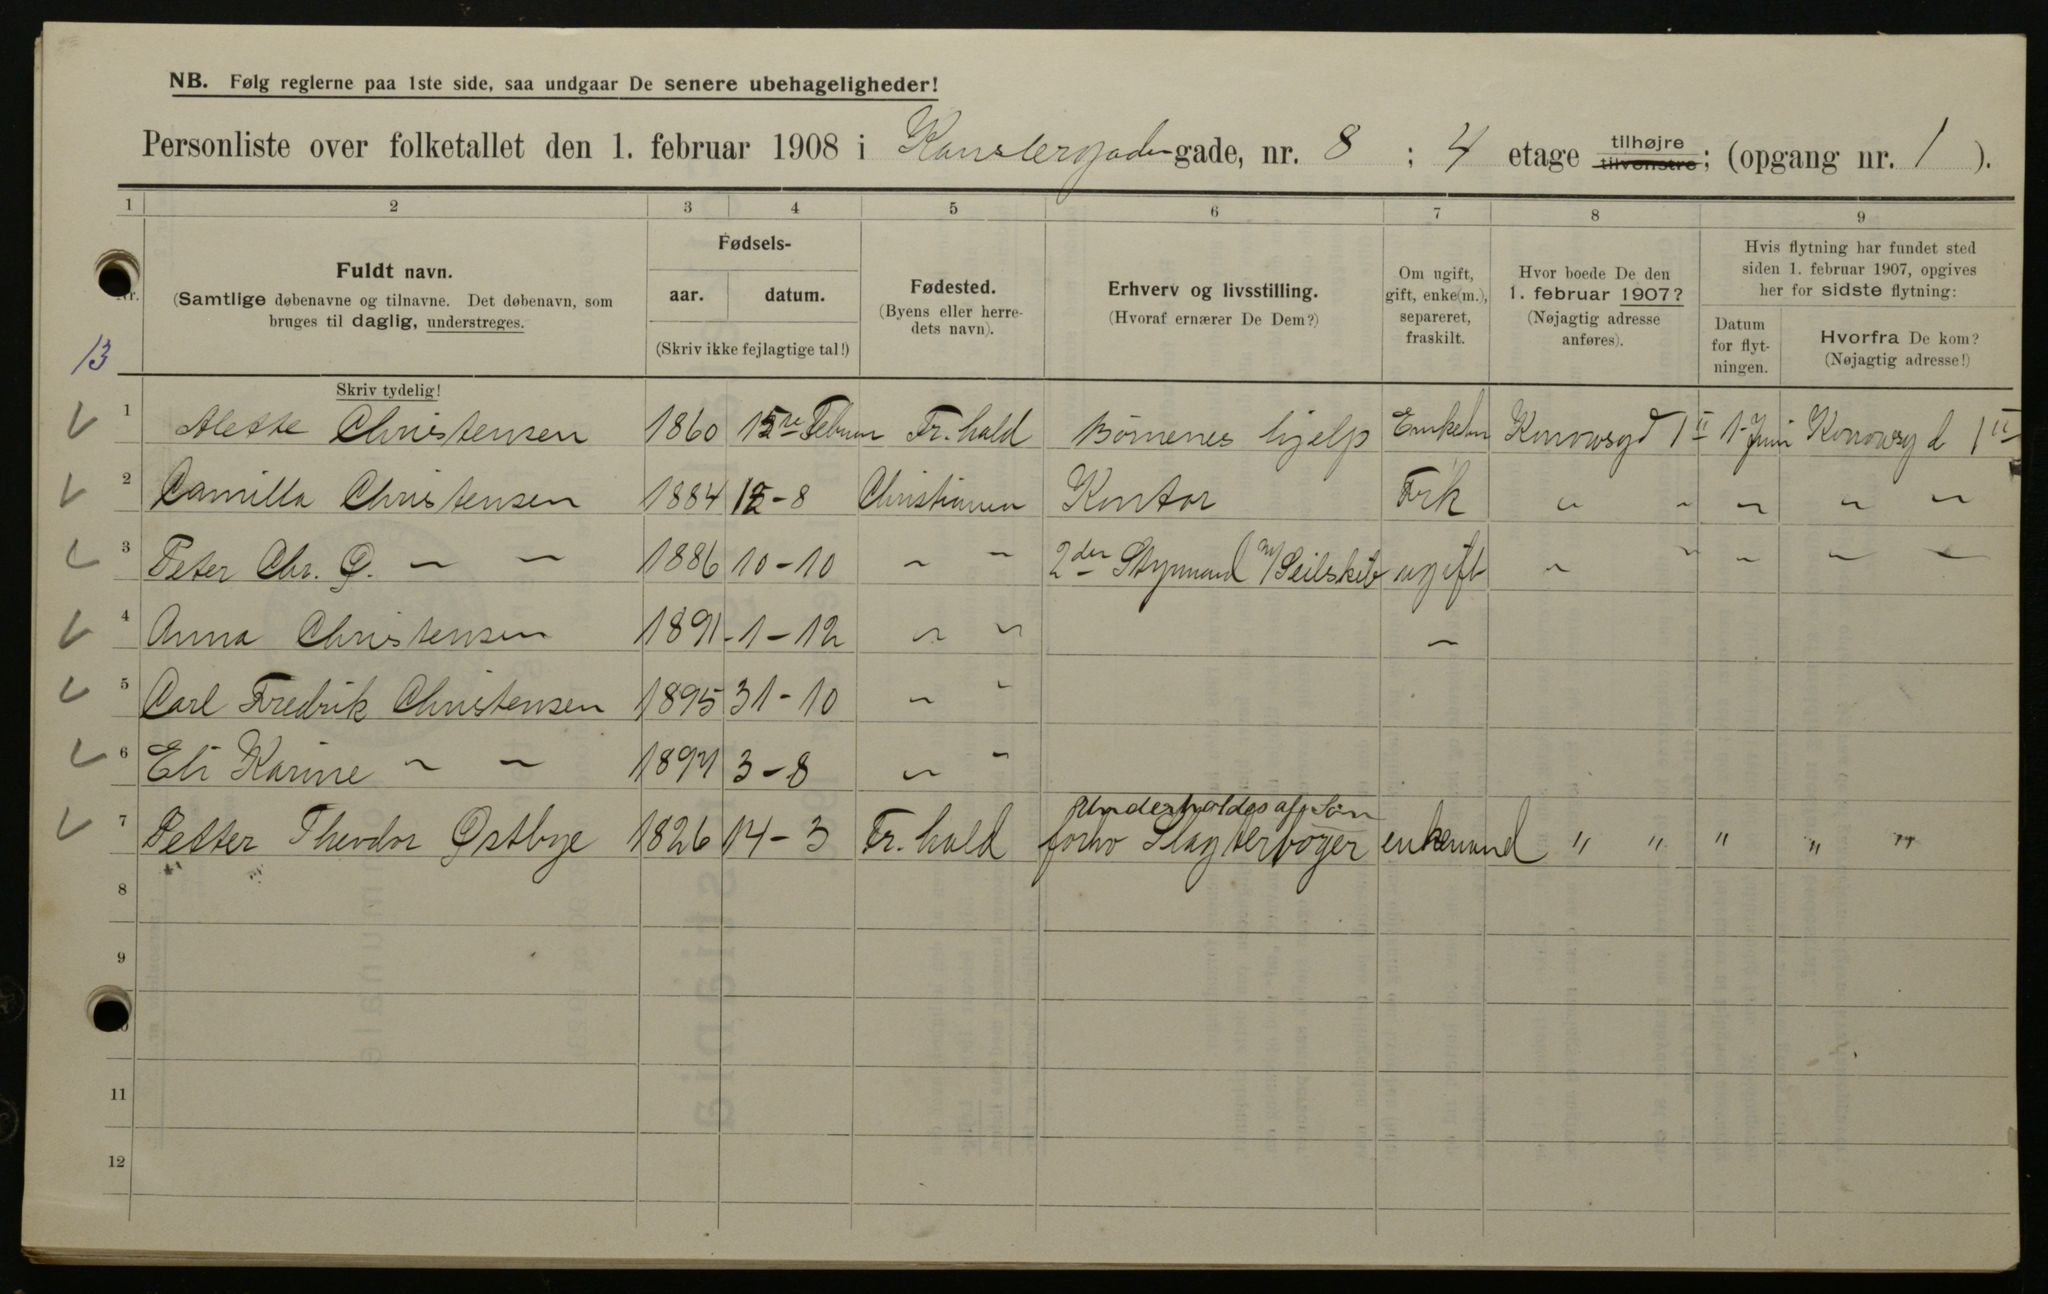 NB. Følg reglerne paa 1ste side, saa undgaar De senere ubehageligheder!
Personliste over folketallet den 1. februar 1908 i Kanslergaden gade, nr. 8 ; 4 etage tilhøjre tilvenstre; (opgang nr. 1 ).
1 2 3 4 5 6 7 8 9
Nr.
Fuldt navn.
(Samtlige døbenavne og tilnavne. Det døbenavn, som
bruges til daglig, understreges.
Skriv tydelig!
Fødsels-
aar. datum.
(Skriv ikke fejlagtige tal!)
Fødested.
(Byens eller herre-
dets navn).
Erhverv og livsstilling.
(Hvoraf ernærer De Dem?)
Om ugift,
gift, enke(m.),
separeret,
fraskilt.
Hvor boede De den
1. februar 1907?
(Nøjagtig adresse
anføres).
Hvis flytning har fundet sted
siden 1. februar 1907, opgives
her for sidste flytning:
Datum
for flyt-
ningen.
Hvorfra De kom?
(Nøjagtig adresse!)
13
1 Alette Christensen 1860 Februar Fr.hald Børnenes hjelp Konowsgd 1 II 1 Juni Konowsgd 1 II
2 Camilla Christensen 1884 - 8 Kontor Frk " " " " "
3 Peter Chr. Ø. " " 1886 10-10 " " 2den Styrmand Seilskib ugift " " " " "
4 Anna Christensen 1891 -1-12 " " "
5 Carl Fredrik Christensen 1895 31-10 " "
6 Eli Karine " " 1897 3-8 " "
Underholdes af Søn
7 Petter Theodor Østbye 1826 14-3 Fr.hald enkemand " " " " "
8
9
10
11
12